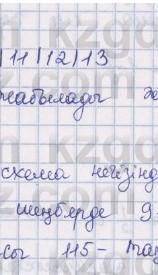 |11|12|13
жабылады
схема негізінд
шеңберде 9
сы 115- тар